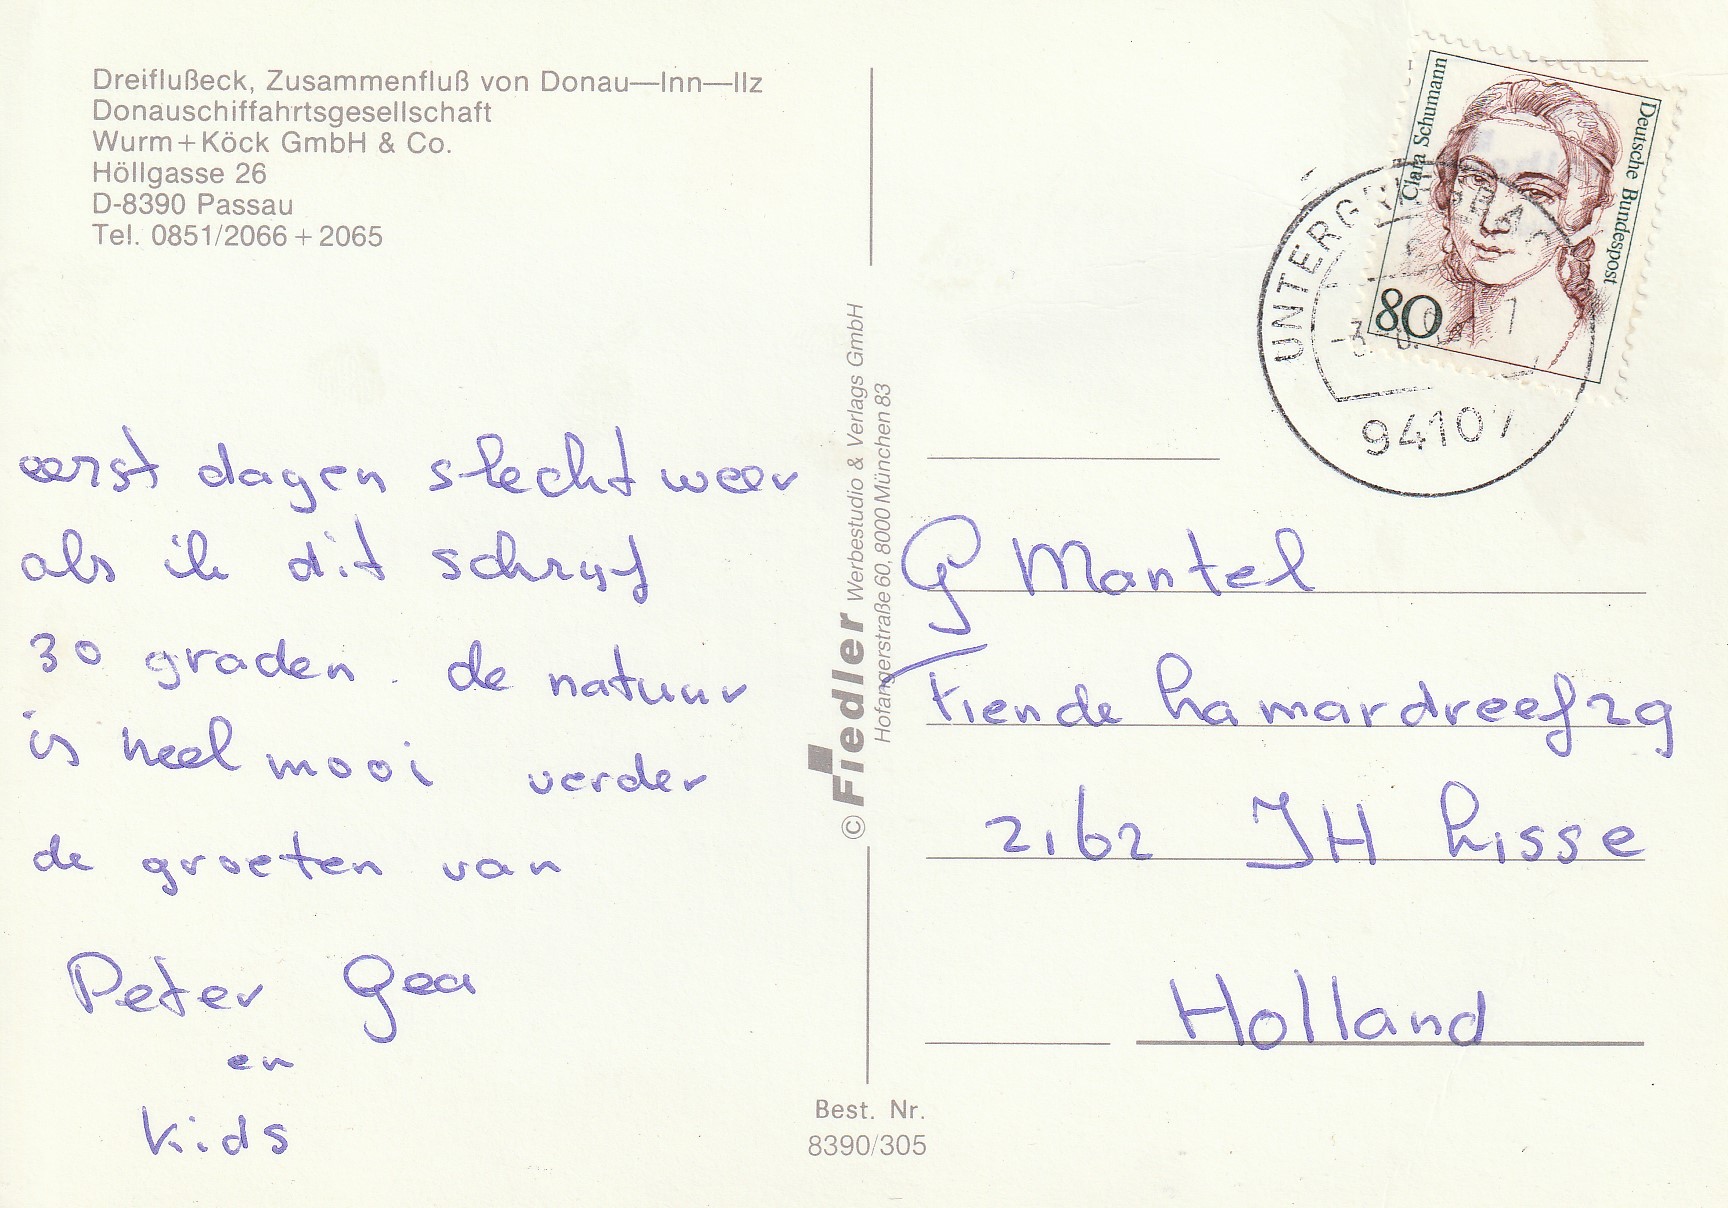 Dreiflußeck, Zusammenfluß von Donau—Inn—Ilz
Donauschiffahrtsgesellschaft
Wurm+Köck GmbH & Co.
Höllgasse 26
D-8390 Passau
Tel. 0851/2066+2065
eerst dagen slecht weer
als ik dit schryf
30 graden. de natuur
is heel mooi verder
de groeten van
Peter Gea
en
kids
© Fiedler Werbestudio & Verlags GmbH
Hofangerstraße 60, 8000 München 83
Best. Nr.
8390/305
Clara Schumann
Deutsche Bundespost
80
94107
G Mantel
Tiende hamardreef 29
2162 JH Lisse
Holland